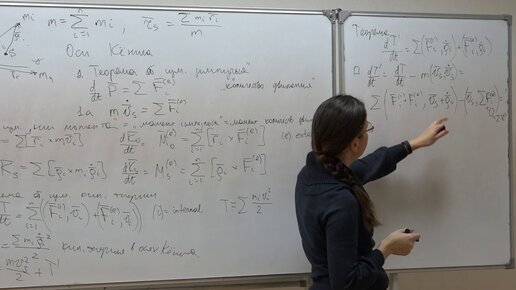 m_i
m = \sum_{i=1}^{n} m_i , \bar{r}_s = \frac{\sum m_i \bar{r}_i}{m}
S
Оси Кёнига
1 Теорема об изм. импульса
\frac{d}{dt} \bar{P} = \sum_{i=1}^{n} \bar{F}_i^{(e)} "количество движения"
1a m \dot{\bar{v}}_s = \sum \bar{F}_i^{(e)}
изм. кин. момента = "момент импульса" = момент количеств движения
= \sum [\bar{r}_i \times m \bar{v}_i] \frac{d\bar{K}_o}{dt} = \bar{M}_o^{(e)} = \sum_{i=1}^{n} [\bar{r}_i \times \bar{F}_i^{(e)}] (e)
\bar{K}_s = \sum [\bar{\rho}_i \times m_i \dot{\bar{\rho}}_i] \frac{d\bar{K}_s}{dt} = \bar{M}_s^{(e)} = \sum_{i=1}^{n} [\bar{\rho}_i \times \bar{F}_i^{(e)}]
об изм. кин. энергии
\frac{dT}{dt} = \sum_{i=1}^{n} ((\bar{F}_i^{(e)}, \bar{v}_i) + (\bar{F}_i^{(i)}, \bar{v}_i)) (i) = internal T = \sum \frac{m_i v_i^2}{2}
= \sum \frac{m_i \dot{\rho}_i^2}{2} кин. энергия в осях Кёнига
\frac{m v_s^2}{2} + T'
Теорема
\frac{dT'}{dt} = \sum (\bar{F}_i^{(e)}, \dot{\bar{\rho}}_i) + (\bar{F}_i^{(i)}, \dot{\bar{\rho}}_i)
\frac{dT'}{dt} = \frac{dT}{dt} - m(\dot{\bar{v}}_s, \bar{v}_s) =
= \sum (\bar{F}_i^{(i)} + \bar{F}_i^{(e)}, \bar{v}_s + \dot{\bar{\rho}}_i) - (\bar{v}_s, \sum \bar{F}_i^{(e)}) =